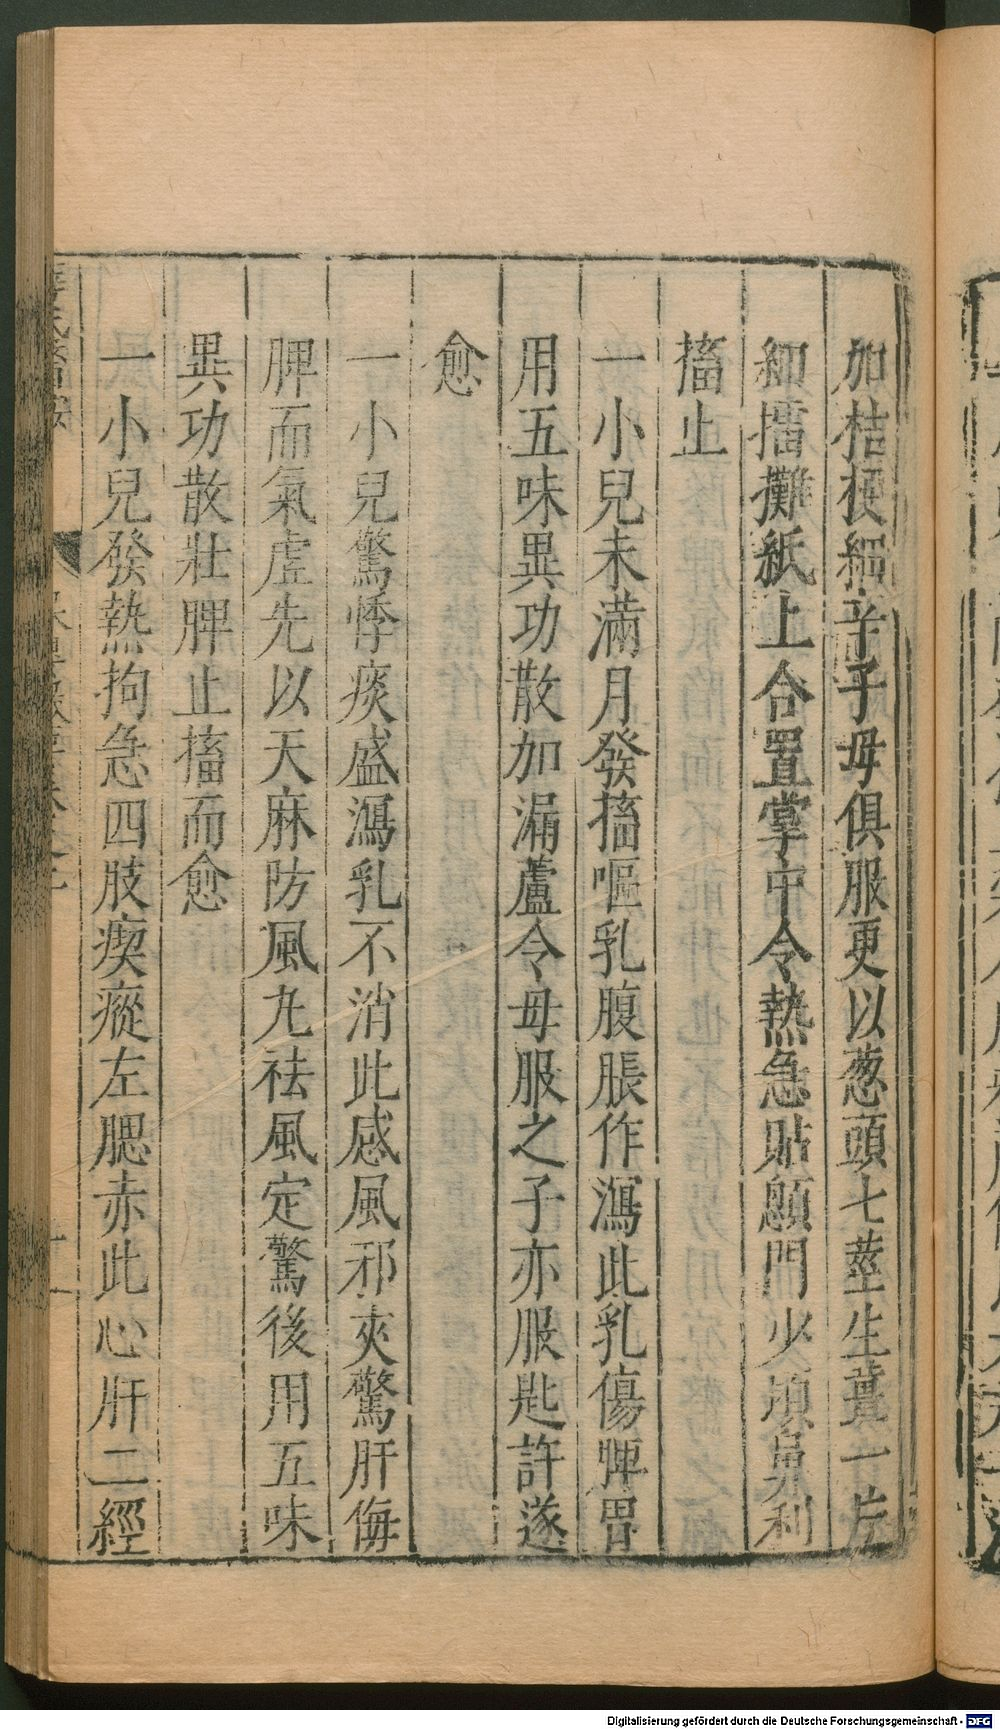 加桔梗細辛子母俱服更以葱頭七莖生薑一片
細擂攤紙上合置掌中令熱急貼顖門少頃鼻利
搐止
一小兒未滿月發搐嘔乳腹脹作瀉此乳傷脾胃
用五味異功散加漏蘆令母服之子亦服匙許遂
愈
一小兒驚悸痰盛瀉乳不消此感風邪夾驚肝侮
脾而氣虛先以天麻防風丸祛風定驚後用五味
異功散壯脾止搐而愈
一小兒發熱拘急四肢瘈瘲左腮赤此心肝二經
Digitalisierung gefördert durch die Deutsche Forschungsgemeinschaft - DFG